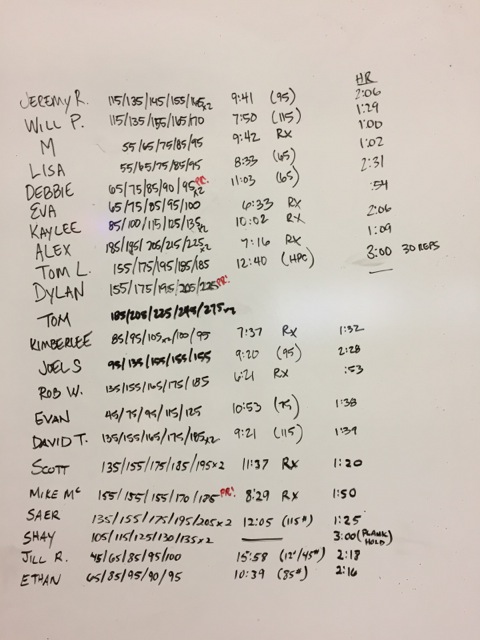 HR
JEREMY R. 115/135/145/155/165x2 9:41 (95) 2:06
WILL P. 115/135/155/165/170 7:50 (115) 1:29
M 55/65/75/85/95 9:42 RX 1:00
LISA 55/65/75/85/95 8:33 (65) 1:02
DEBBIE 65/75/85/90/95x2 PR! 11:03 (65) 2:31
EVA 65/75/85/95/100 6:33 RX :54
KAYLEE 85/100/115/125/135x2 10:02 RX 2:06
ALEX 185/195/205/215/225x2 7:16 RX 1:09
TOM L. 155/175/195/185/185 12:40 (HPC) 3:00 30 REPS
DYLAN 155/175/195/205/225 PR!
TOM 185/205/225/245/275x2
KIMBERLEE 85/95/105x2/100/95 7:37 RX 1:32
JOEL S 95/135/155/155/155 9:20 (95) 2:28
ROB W. 135/155/165/175/185 6:21 RX :53
EVAN 45/75/95/115/125 10:53 (75) 1:38
DAVID T. 135/155/165/175/185x2 9:21 (115) 1:39
SCOTT 135/155/175/185/195x2 11:37 RX 1:20
MIKE Mc 155/185/155/170/185 PR! 8:29 RX 1:50
SAER 135/155/175/195/205x2 12:05 (115#) 1:25
SHAY 105/115/125/130/135x2 3:00 (PLANK HOLD)
JILL R. 45/65/85/95/100 15:58 (12"/45#) 2:18
ETHAN 65/85/95/90/95 10:39 (85#) 2:16